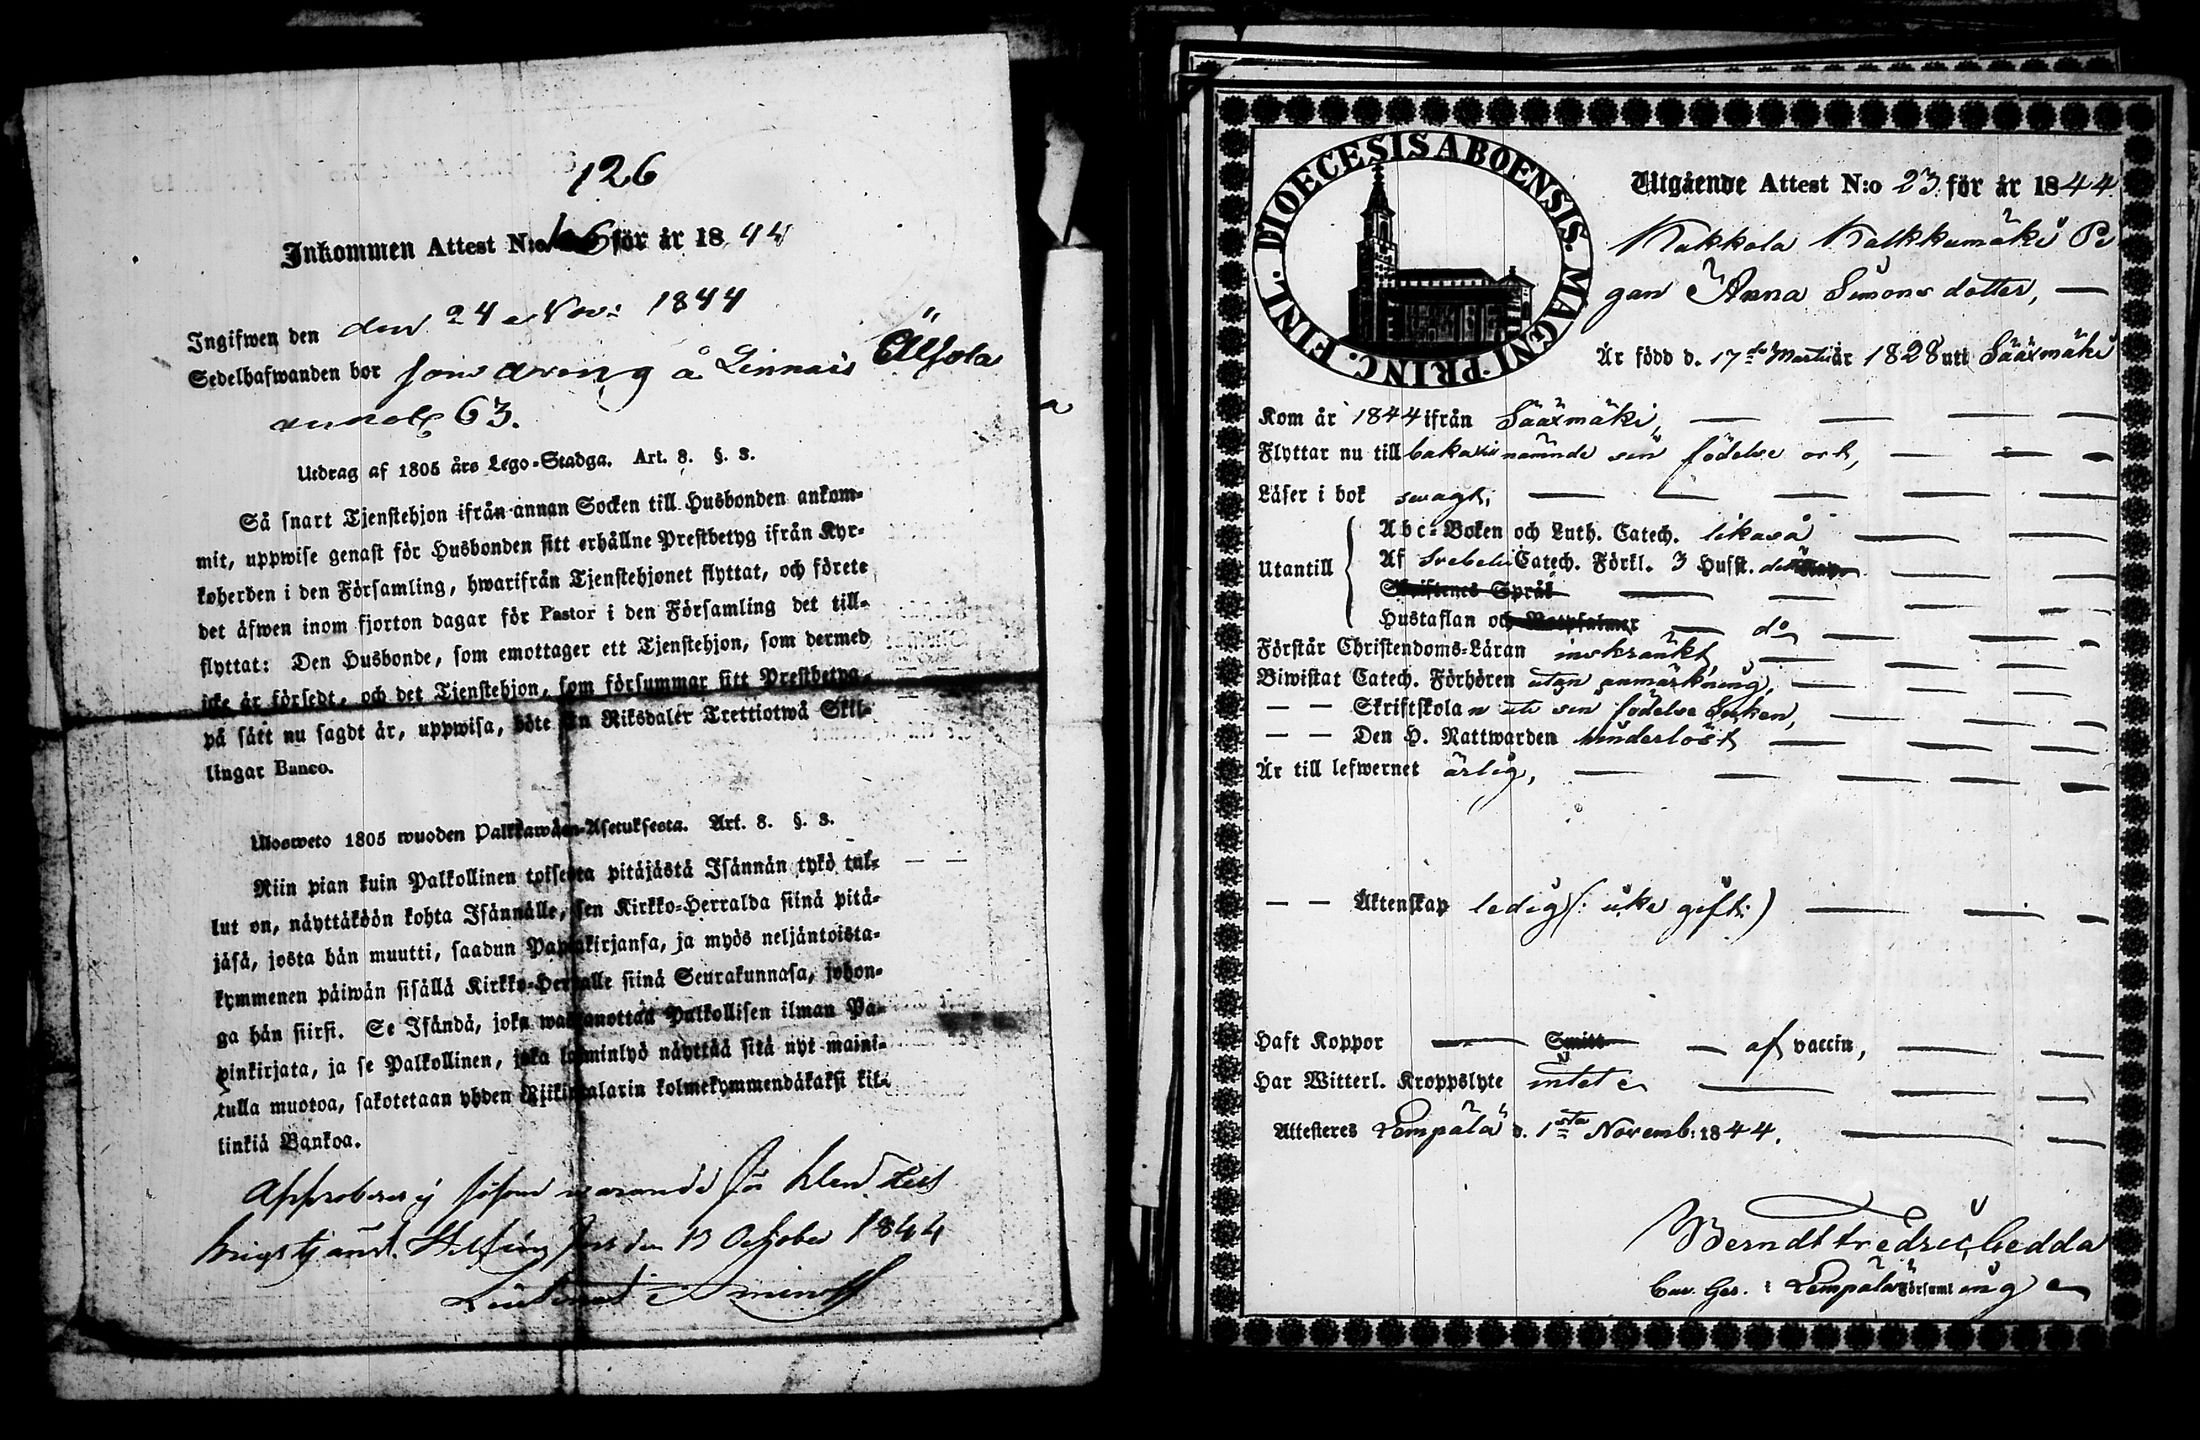 126
Inkommen Attest N:o 126 för år 1844
Ingifwen den den 24 Nov: 1844
Sedelhafwanden bor som dreng å Linnais Äijola
63.
Utdrag af 1805 års Lego-Stadga. Art. 8. §. 3.
Så snart Tjenstehjon ifrån annan Socken till Husbonden ankom-
mit, uppwise genast för Husbonden sitt erhållne Prestbetyg ifrån Kyr-
koherden i den Församling, hwarifrån Tjenstehjonet flyttat, och förete
det äfwen inom fjorton dagar för Pastor i den Församling det till-
flyttat: Den Husbonde, som emottager ett Tjenstehjon, som dermed
icke är försedt, och det Tjenstehjon, som försummar sitt Prestbetyg,
på sätt nu sagdt är, uppwisa, böte En Riksdaler Trettiotwå Skil-
lingar Banco.
Ulosweto 1805 wuoden Palkkawäen-Asetuksesta. Art. 8. §. 3.
Niin pian kuin Palkollinen toisesta pitäjästä Isännän tykö tul-
lut on, näyttäköön kohta Isännälle, sen Kirkko-Herralda siinä pitä-
jäsä, josta hän muutti, saadun Papinkirjansa, ja myös neljäntoista-
kymmenen päiwän sisällä Kirkko-Herralle siinä Seurakunnasa, johon-
ga hän siirsi. Se Isändä, joka wastaanottaa Palkollisen ilman Pa-
pinkirjata, ja se Palkollinen, joka laiminlyö näyttää sitä nyt maini-
tulla muotoa, sakotetaan yhden Riikintalarin kolmekymmendäkaksi kil-
linkiä Bankoa.
Approberas ej såsom warande för klen till
krigstjenst. Helsingfors den 13 October 1844
Lieutenant Aminoff
DIOECESIS ABOENSIS. MAGNI PRINC. FINL.
Utgående Attest N:o 23 för år 1844
Kakkola Kalkkumäki Pi
gan Anna Simonsdotter, —
Är född d. 17de Martii år 1828 uti Sääxmäki
Kom år 1844 ifrån Sääxmäki, —
Flyttar nu till baka till nämnde sin födelse ort, —
Läser i bok swagt, —
Abc-Boken och Luth. Catech. likaså
Utantill
Af Svebelii Catech. Förkl. 3 Hufst.
Skriftenes Språk
Hustaflan och Botpsalmer — do
Förstår Christendoms-Läran inskränkt, —
Biwistat Catech. Förhören utan anmärkning, —
— — Skriftskolan uti sin födelse Socken, —
— — Den H. Nattwarden hinderlöst —
Är till lefwernet ärlig, —
— — Äktenskap ledig (: icke gift:) —
Haft Koppor — Smitt — af vaccin, —
Har Witterl. Kroppslyte intet —
Attesteres Lempälä d. 1sta Novemb: 1844. —
Berndt Fredric Gedda
Lempälä Församling